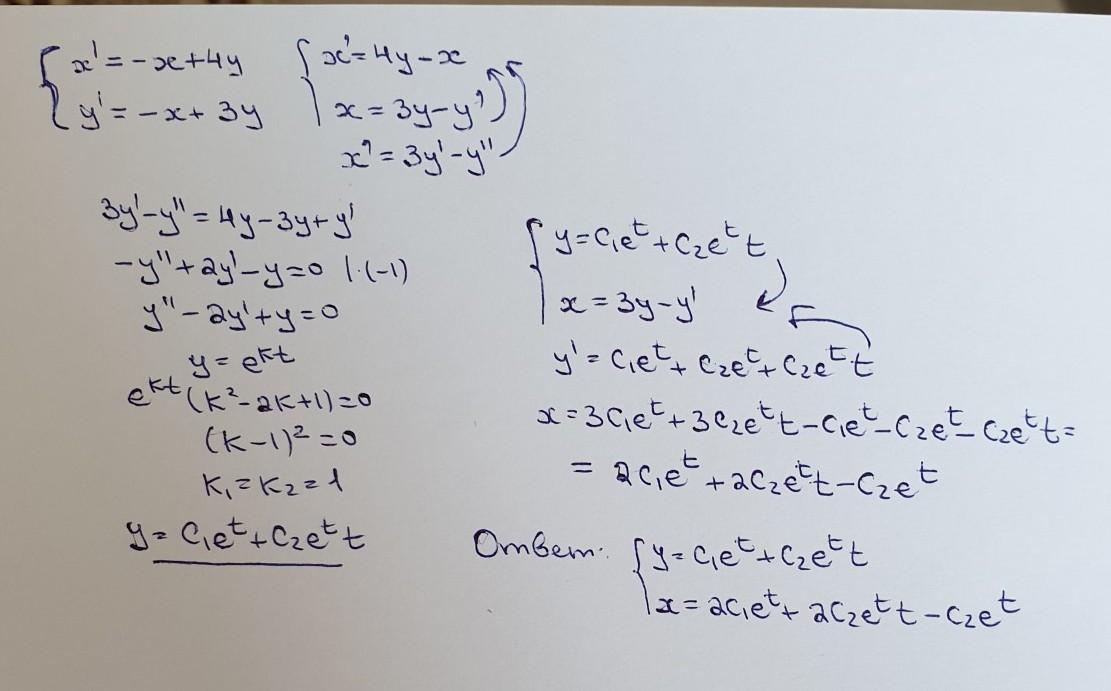 x' = -x+4y
y' = -x+3y
x' = 4y-x
x = 3y-y'
x' = 3y'-y''
3y'-y'' = 4y-3y+y'
-y''+2y'-y=0 |·(-1)
y''-2y'+y=0
y = e^{kt}
e^{kt}(k²-2k+1)=0
(k-1)²=0
k₁=k₂=1
y= C₁e^t+C₂e^t t
y=C₁e^t+C₂e^t t
x=3y-y'
y'=C₁e^t+C₂e^t+C₂e^t t
x=3C₁e^t+3C₂e^t t-C₁e^t-C₂e^t-C₂e^t t=
= 2C₁e^t+2C₂e^t t-C₂e^t
Ответ: y=C₁e^t+C₂e^t t
x=2C₁e^t+2C₂e^t t-C₂e^t